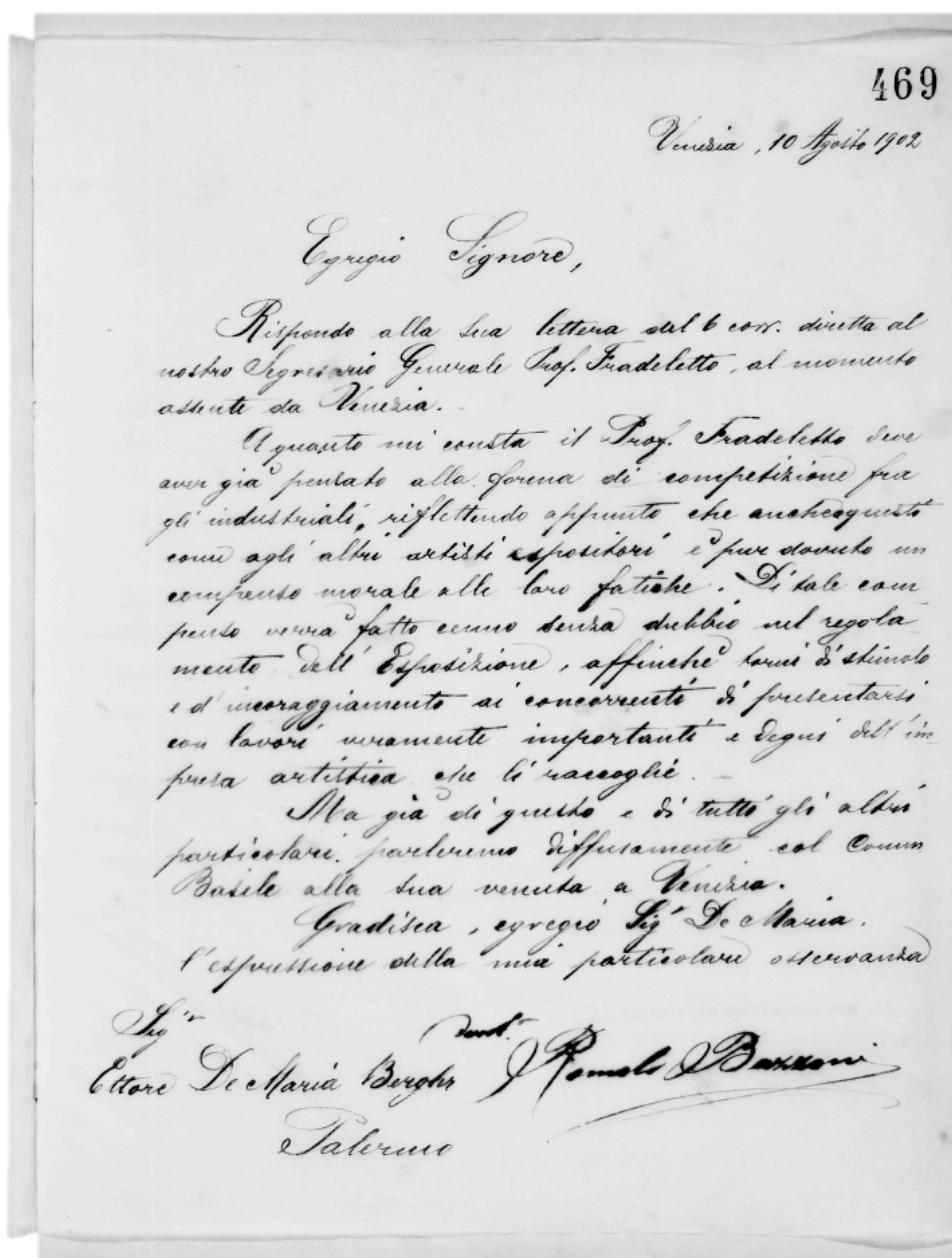 469
Venezia, 10 Agosto 1902
Egregio Signore,
Rispondo alla sua lettera del 6 corr. diretta al
nostro Segretario Generale Prof. Fradeletto, al momento
assente da Venezia.
A quanto mi consta il Prof. Fradeletto deve
aver già pensato alla forma di competizione fra
gli industriali, riflettendo appunto che anche a questi
come agli altri artisti espositori è pur dovuto un
compenso morale alle loro fatiche. Di tale com
penso verrà fatto cenno senza dubbio nel regola-
mento dell'Esposizione, affinchè torni di stimolo
e d'incoraggiamento ai concorrenti di presentarsi
con lavori veramente importanti e degni dell'im-
presa artistica che li raccoglie.
Ma già di questo e di tutti gli altri
particolari, parleremo diffusamente col Comm
Basile alla sua venuta a Venezia.
Gradisca, egregio Sigr De Maria,
l'espressione della mia particolare osservanza
Sigr devot.
Ettore De Maria Bergler Romolo Bazzoni
Palermo